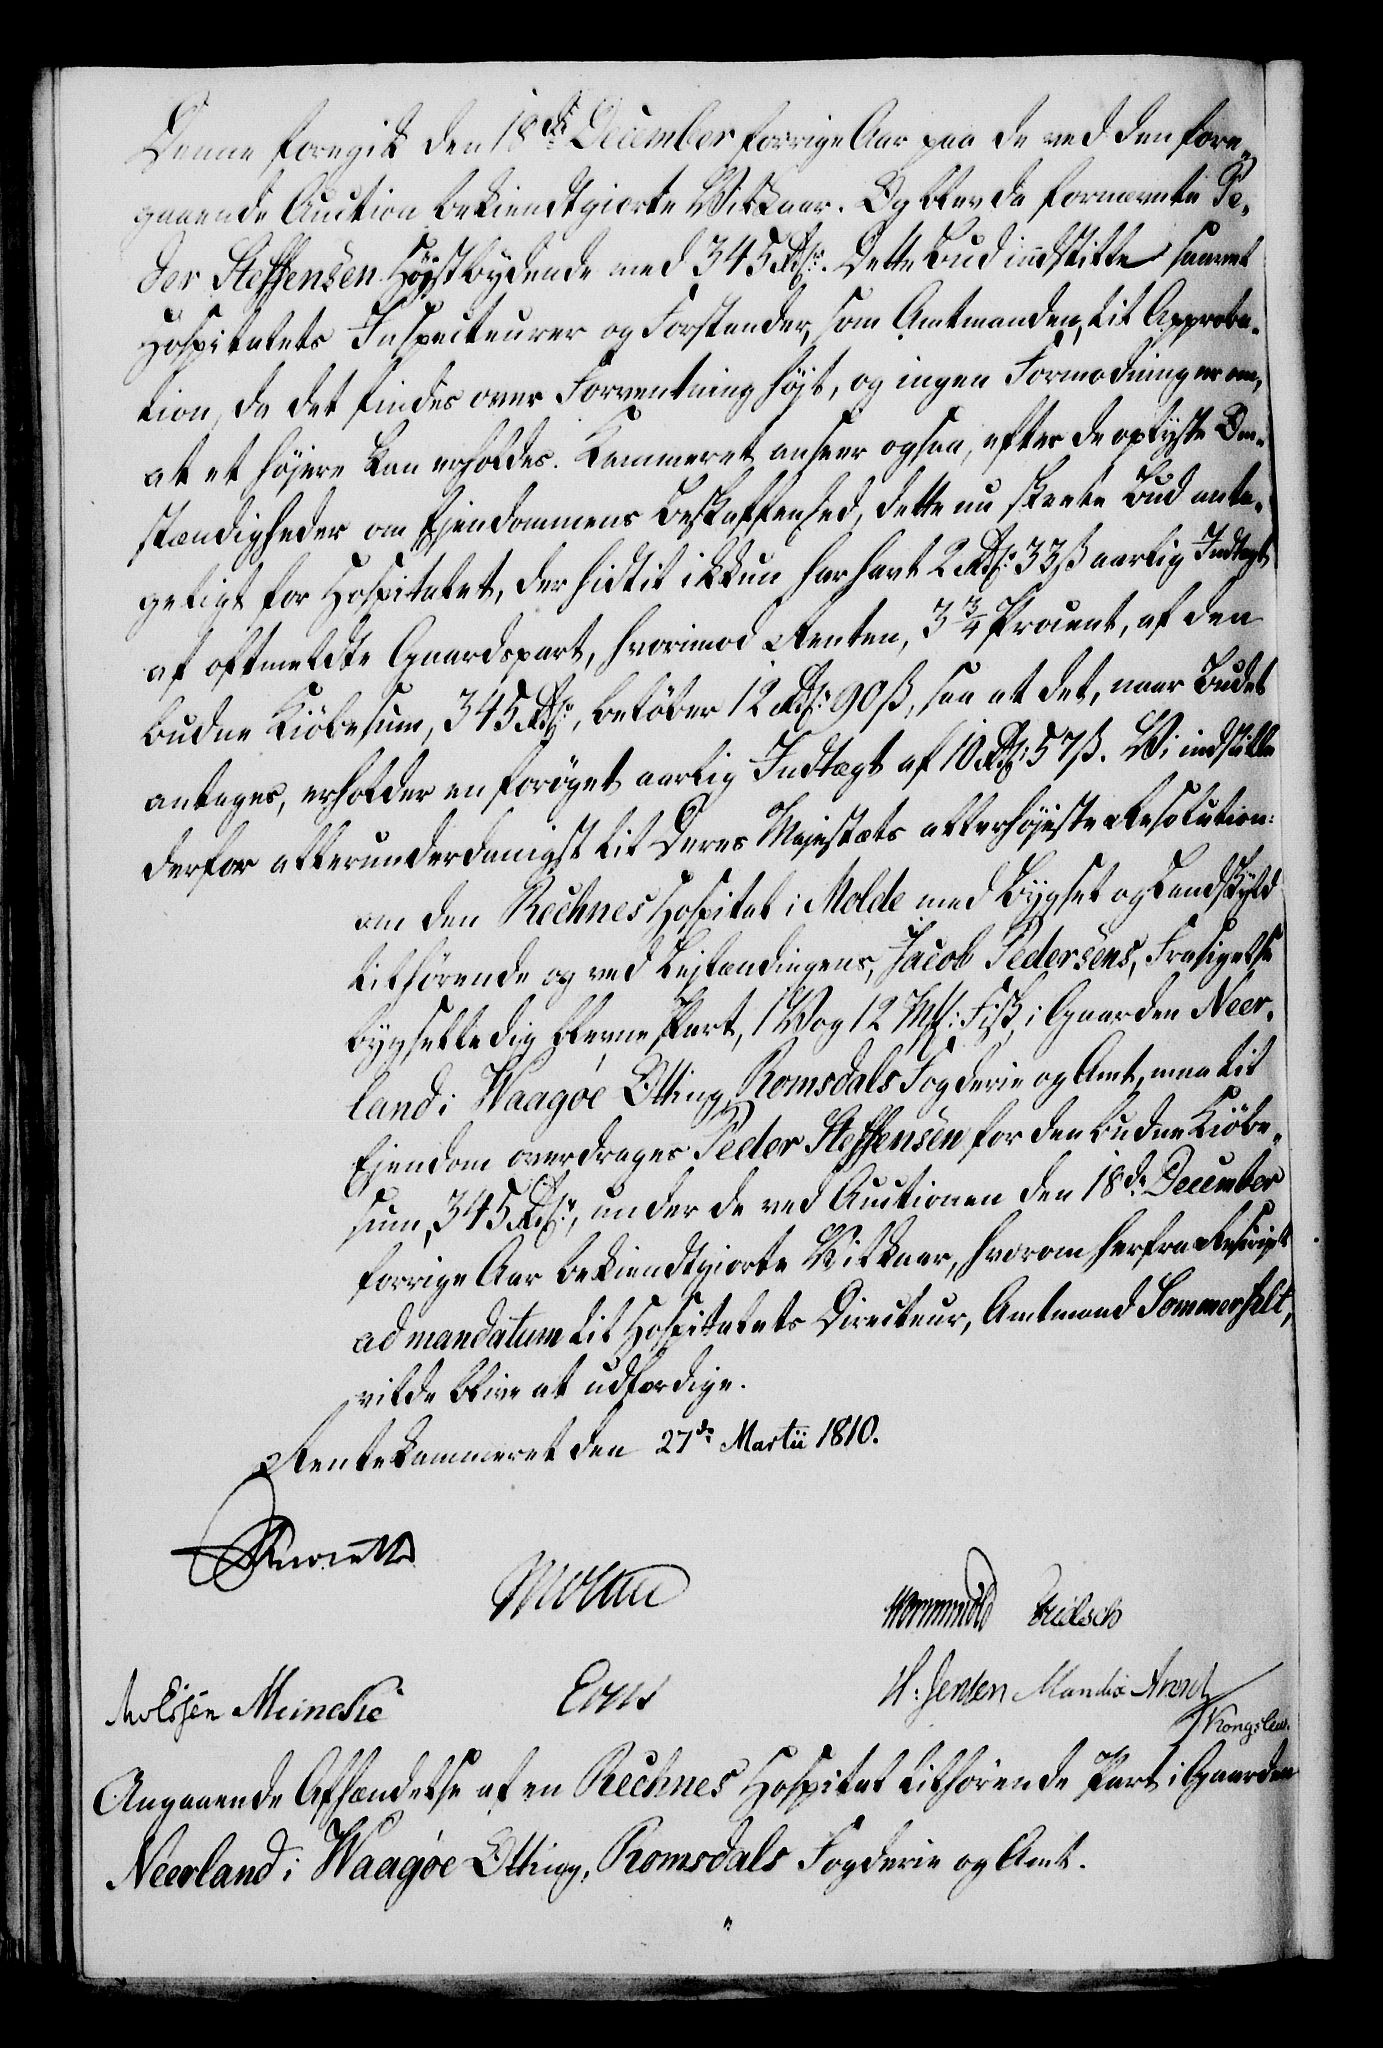 Denne foregik den 18de December forrige Aar paa de ved den fore-
gaaende Auction bekiendtgiorte Vilkaar. Og blev da fornævnte Pe-
der Steffensen Høistbydende med 345 Rdlr. Dette Bud indstille saavel
Hospitalets Inspecteurer og Forstander, som Amtmanden, til Approba-
tion, da det findes over Forventning højt, og ingen Formodning er om,
at et højere kan erholdes. Kammeret anseer ogsaa, efter de oplyste Om-
stændigheder om Ejendommens Beskaffenhed, dette nu skeete Bud anta-
geligt for Hospitalet, der hidtil ikkun har havt 2 Rdlr. 33 ß aarlig Indtægt
af oftmeldte Gaardspart, hvorimod Renten, 3 3/4 Procent, af den
budne Kiöbesum, 345 Rdlr., belöber 12 Rdlr. 90 ß, saa at det, naar Budet
antages, erholder en forøget aarlig Indtægt af 10 Rdlr. 57 ß. Vi indstille
derfor allerunderdanigst til Deres Majestæts allerhöjeste Resolution:
om den Rechnes Hospital i Molde med Bygsel og Landskyld
tilhørende og ved Lejlændingens, Jacob Pedersens, Frasigelse
bygselledig blevne Part, 1 Vog 12 Mk: Fisk, i Gaarden Neer-
land i Waagøe Otting, Romsdals Fogderie og Amt, maa til
Ejendom overdrages Peder Steffensen for den budne Kiöbe-
sum, 345 Rdlr., under de ved Auctionen den 18de December
forrige Aar bekiendtgiorte Vilkaar, hvorom herfra Rescript
ad mandatum til Hospitalets Directeur, Amtmand Sommerfelt,
vilde blive at udfærdige.
Rentekammeret den 27de Martii 1810.
Wormskiold
Meincke
H: Jensen
Kongslew.
Angaaende Afhændelse af en Rechnes Hospital tilhørende Part i Gaarden
Neerland i Waagøe Otting, Romsdals Fogderie og Amt.